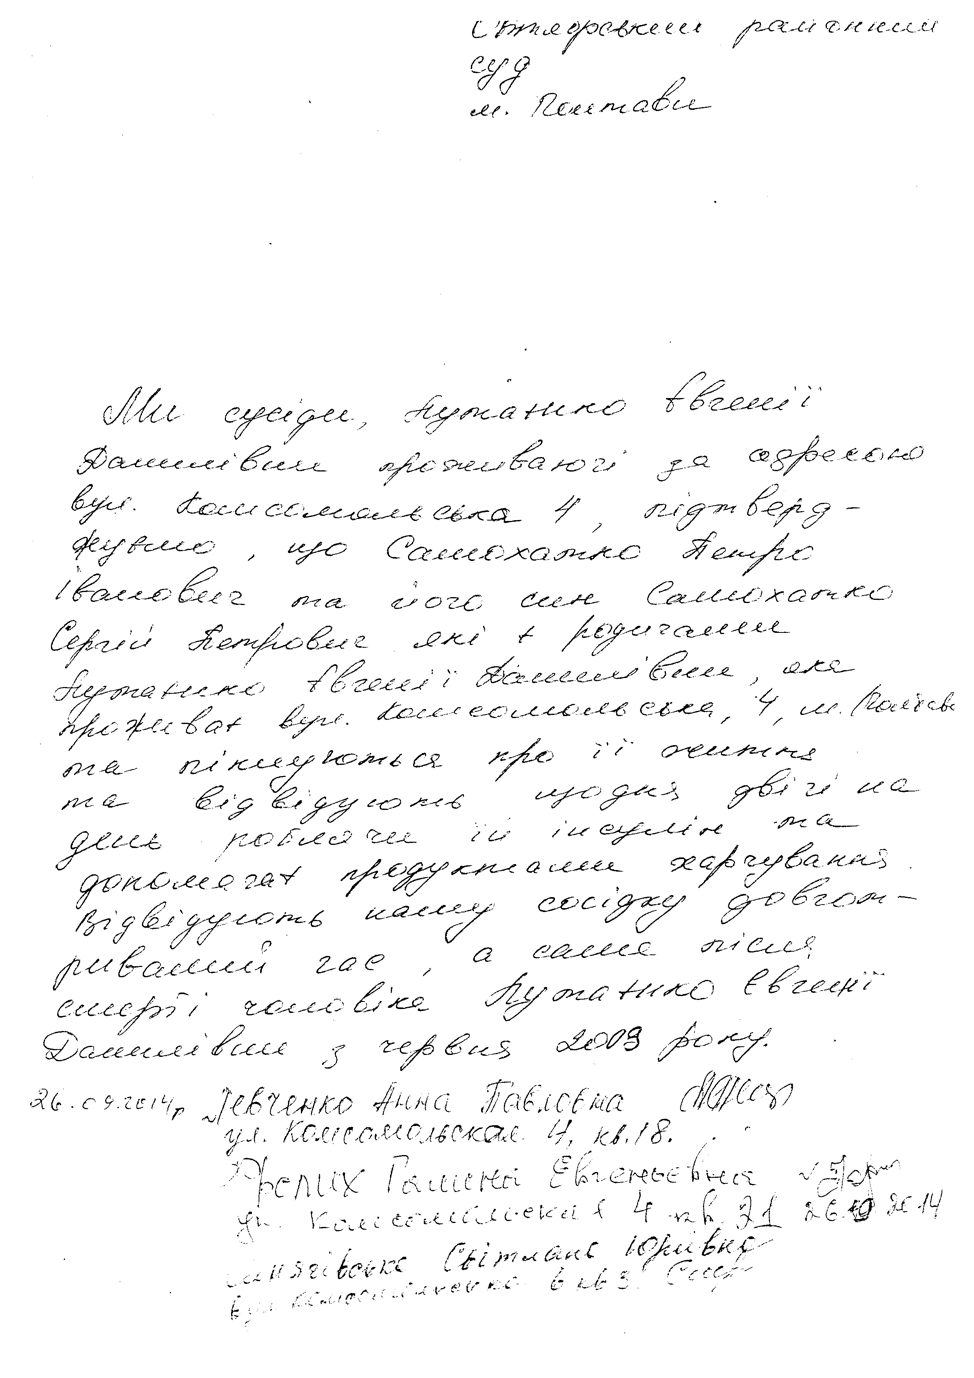 Октябрський районний
суд
м. Полтави
Ми сусіди, Лутатико Євгенії
Данилівни проживаючі за адресою
вул. Комсомольська 4, підтверд-
жуємо, що Самохатко Петро
Іванович та його син Самохатко
Сергій Петрович які є родичами
Євгенії Данилівни, яка
проживає вул. Комсомольська, 4, м. Полтава
та піклуються про її життя
та відвідують щодня двічі на
день роблячи їй інсулін та
допомагає продуктами харчування.
Відвідують нашу сосідку довгот-
ривалий час, а саме після
смерті чоловіка Євгенії
Данилівни з червня 2009 року.
26.09.2014р Левченко Анна Павловна
ул. Комсомольская 4, кв. 18.
Галина Евгеньевна
ул. Комсомольская 4 кв. 31 2014
Світлана Юріївна
вул Комсомольська 6 кв 3.